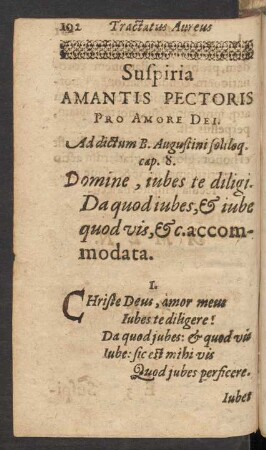 192 Tractatus Aureus
Suspiria
AMANTIS PECTORIS
PRO AMORE DEI.
Ad dictum B. Augustini soliloq.
cap. 8.
Domine, iubes te diligi.
Da quod iubes, & iube
quod vis, &c. accom-
modata.
I.
CHriste Deus, amor meus
Iubes te diligere!
Da quod jubes: & quod vis
Iube: sic est mihi vis
Quod jubes perficere.
Iubes